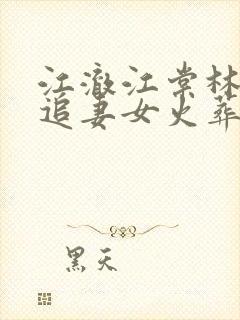 江澈江棠林
追妻女火葬
黑天